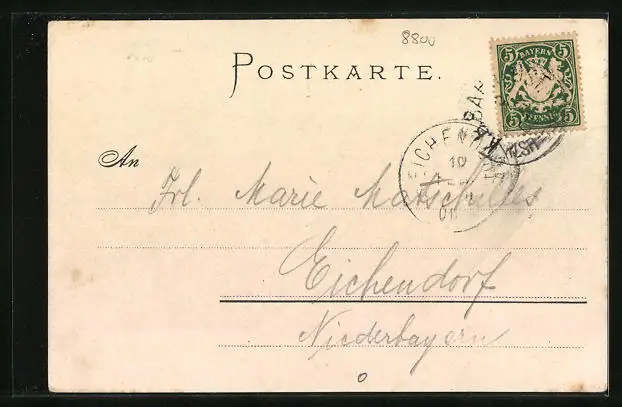 8800
POSTKARTE.
BAYERN
5 5
5 PFENNIG 5
EICHENDORF
10
01
An
Frl. Marie
Eichendorf
Niederbayern